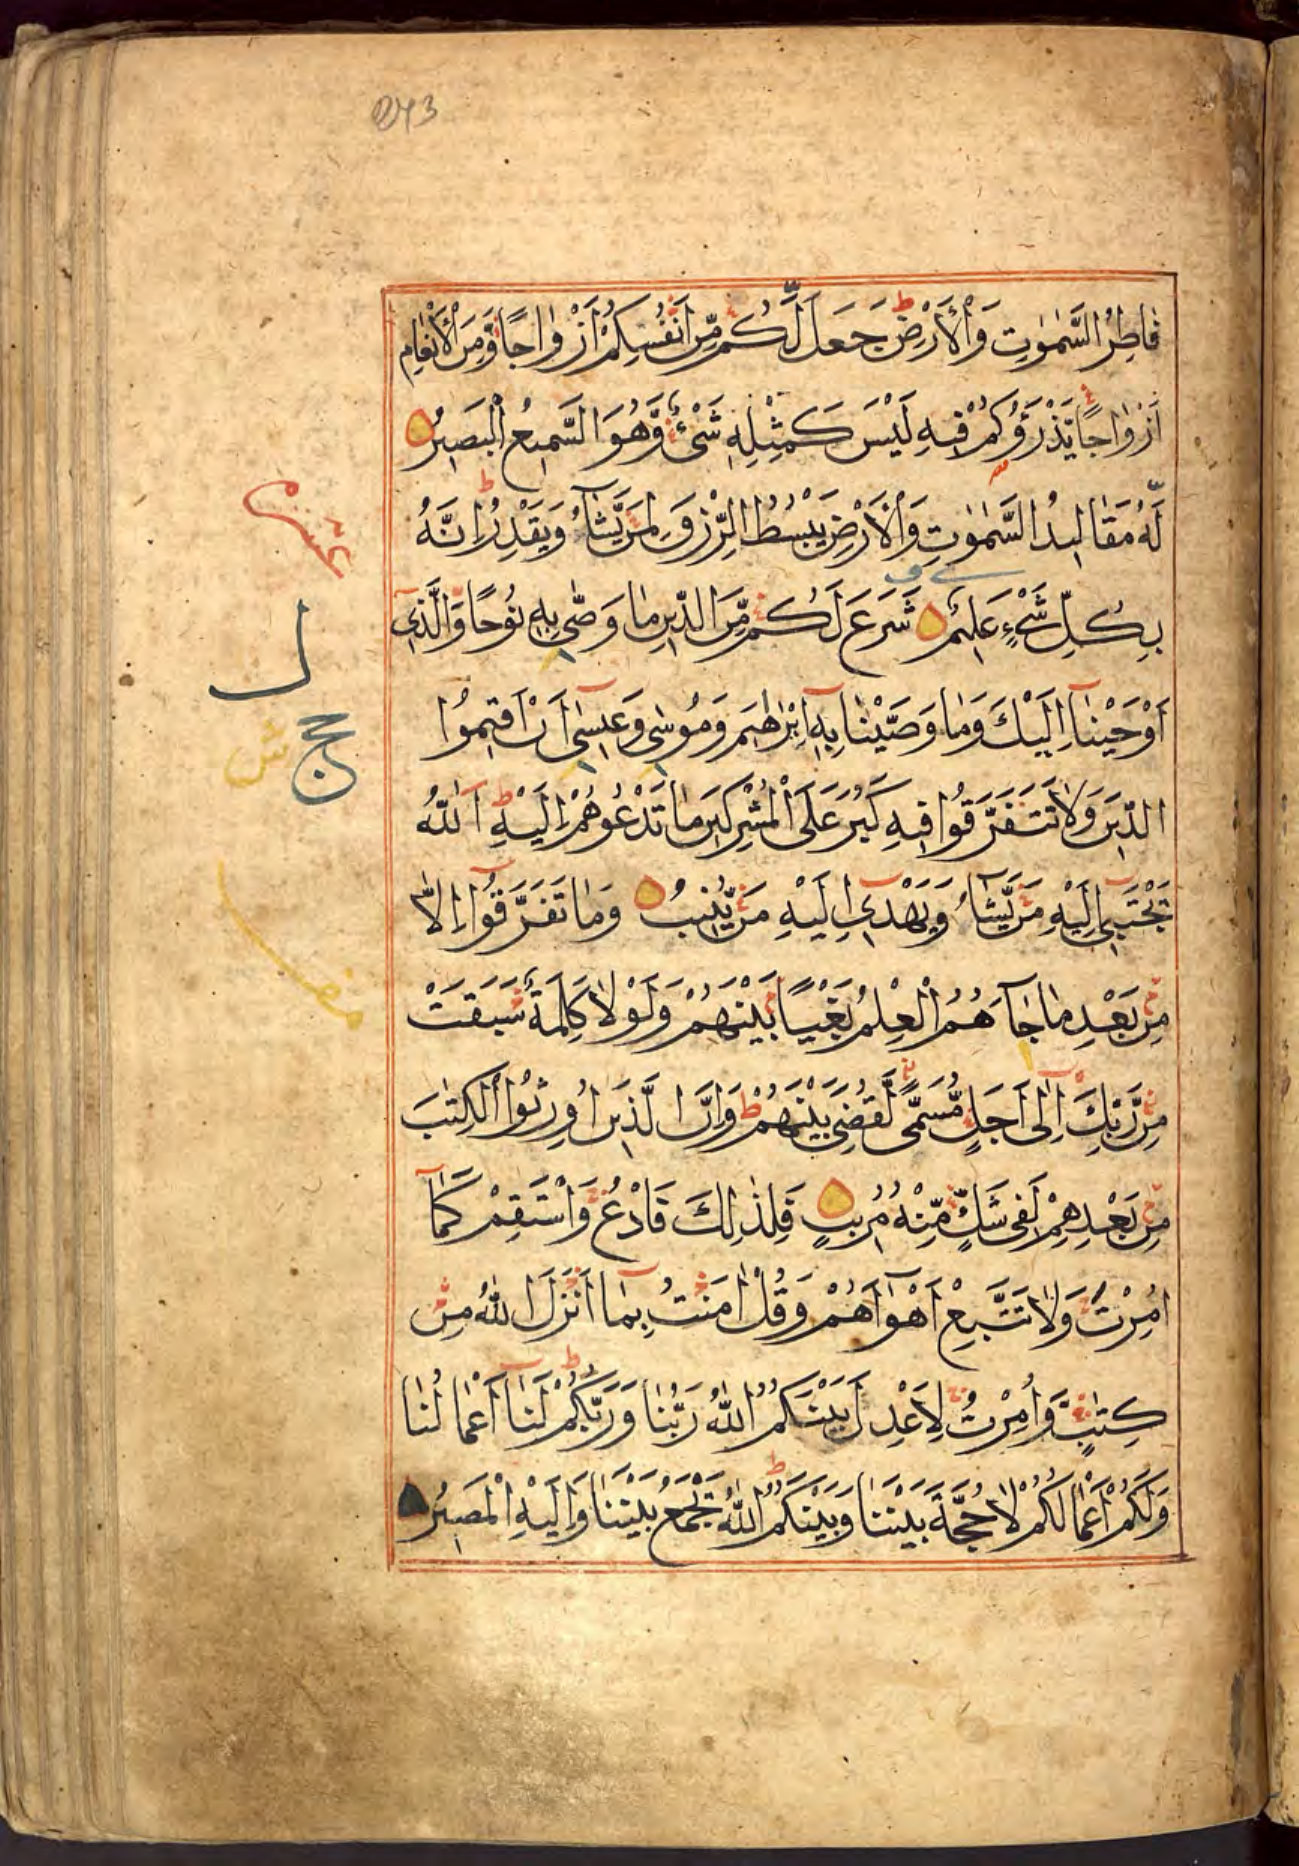 فَاطِرُ السَّمٰوٰتِ وَالْأَرْضِ ط جَعَلَ لَّكُمْ مِّنْ اَنْفُسِكُمْ اَزْوَاجًا وَّمِنَ الْأَنْعَامِ
اَزْوَاجًا يَّذْرَؤُكُمْ فِيهِ لَيْسَ كَمِثْلِهٖ شَىْءٌ وَّهُوَ السَّمِيعُ الْبَصِيرُ
لَهُ مَقَالِيدُ السَّمٰوٰتِ وَالْأَرْضِ يَبْسُطُ الرِّزْقَ لِمَنْ يَّشَآءُ وَيَقْدِرُ ط اِنَّهُ
بِكُلِّ شَىْءٍ عَلِيمٌ شَرَعَ لَكُمْ مِّنَ الدِّينِ مَا وَصّٰى بِهٖ نُوحًا وَّالَّذِىٓ
اَوْحَيْنَآ اِلَيْكَ وَمَا وَصَّيْنَا بِهٖٓ اِبْرٰهِيمَ وَمُوسٰى وَعِيسٰىٓ اَنْ اَقِيمُوا
الدِّينَ وَلَا تَتَفَرَّقُوا فِيهِ كَبُرَ عَلَى الْمُشْرِكِينَ مَا تَدْعُوهُمْ اِلَيْهِ ط اَللّٰهُ
يَجْتَبِىٓ اِلَيْهِ مَنْ يَّشَآءُ وَيَهْدِىٓ اِلَيْهِ مَنْ يُّنِيبُ وَمَا تَفَرَّقُوٓا اِلَّا
مِنْ بَعْدِ مَا جَآءَهُمُ الْعِلْمُ بَغْيًا بَيْنَهُمْ وَلَوْلَا كَلِمَةٌ سَبَقَتْ
مِنْ رَّبِّكَ اِلٰىٓ اَجَلٍ مُّسَمًّى لَّقُضِىَ بَيْنَهُمْ ط وَاِنَّ الَّذِينَ اُورِثُوا الْكِتٰبَ
مِنْ بَعْدِهِمْ لَفِى شَكٍّ مِّنْهُ مُرِيبٍ فَلِذٰلِكَ فَادْعُ وَاسْتَقِمْ كَمَآ
اُمِرْتَ وَلَا تَتَّبِعْ اَهْوَآءَهُمْ وَقُلْ اٰمَنْتُ بِمَآ اَنْزَلَ اللّٰهُ مِنْ
كِتٰبٍ وَّاُمِرْتُ لِاَعْدِلَ بَيْنَكُمُ اللّٰهُ رَبُّنَا وَرَبُّكُمْ ط لَنَآ اَعْمَالُنَا
وَلَكُمْ اَعْمَالُكُمْ لَا حُجَّةَ بَيْنَنَا وَبَيْنَكُمْ ط اَللّٰهُ يَجْمَعُ بَيْنَنَا وَاِلَيْهِ الْمَصِيرُ